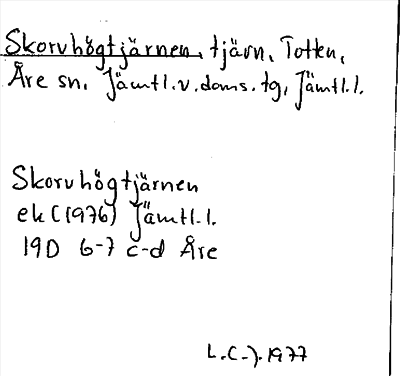 Skorvhögtjärnen, tjärn, Totten,
Åre sn, Jämtl.v.doms.tg, Jämtl.l.
Skorvhögtjärnen
ek (1976) Jämtl.l.
19D 6-7 c-d Åre
L.C-J. 1977